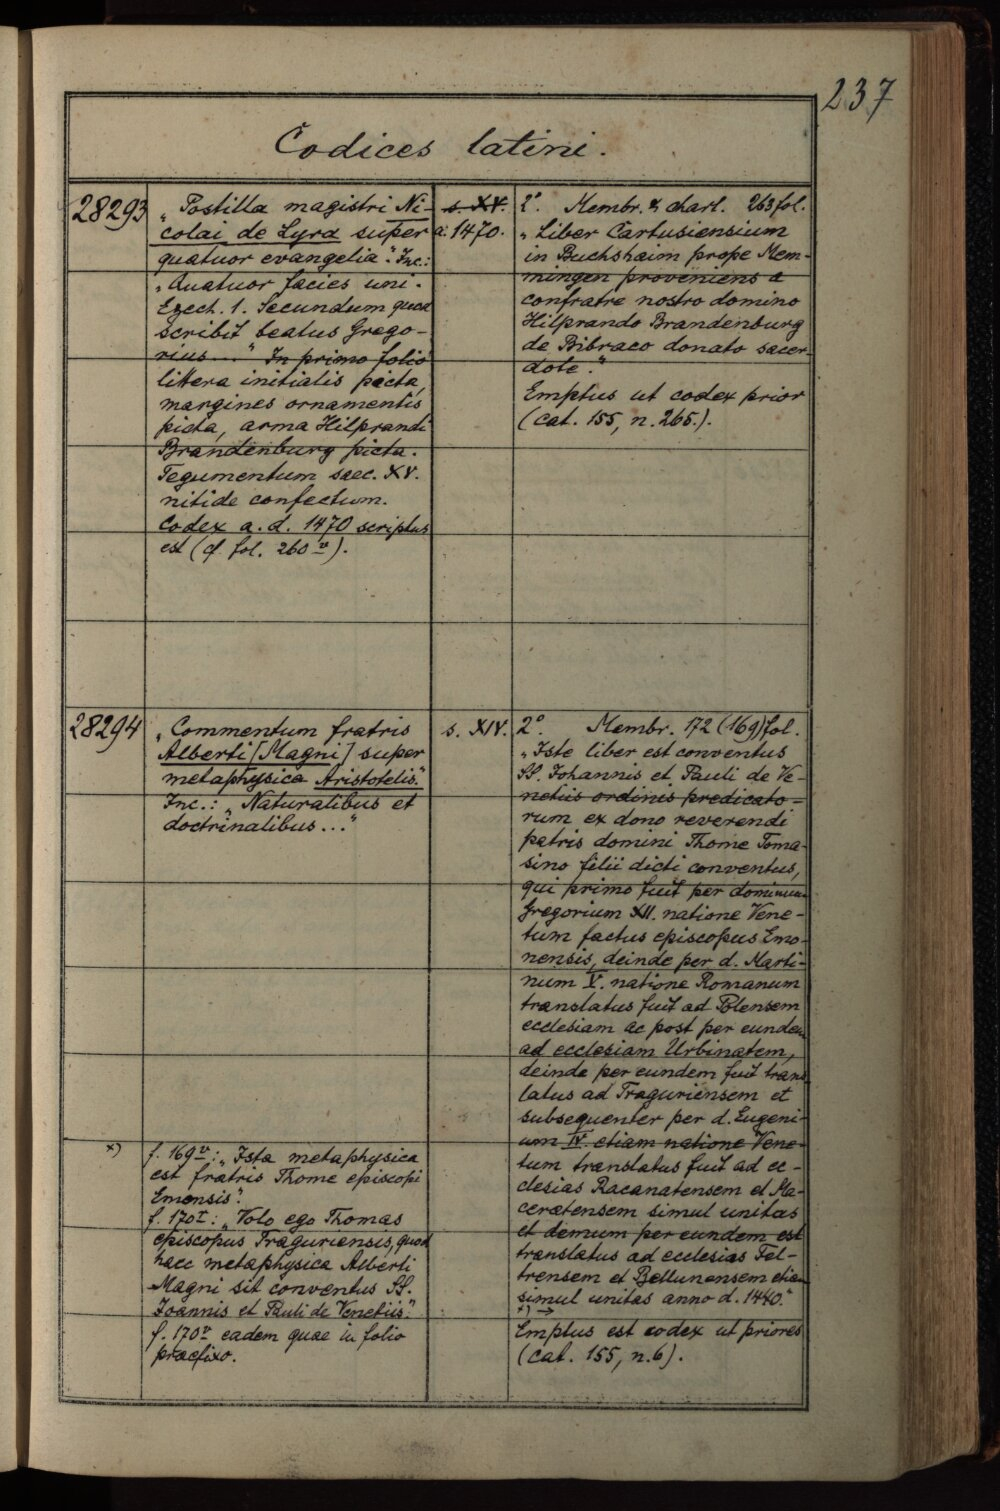 237
Codices latini.
28293
„Postilla magistri Ni-
colai de Lyra super
quatuor evangelia“. Inc.:
„Quatuor facies uni.
Ezech. 1. Secundum quod
scribit beatus Grego-
rius ...“ In primo folio
littera initialis picta,
margines ornamentis
picta, arma Hilprandi
Brandenburg picta.
Tegumentum saec. XV.
nitide confectum.
Codex a. d. 1470 scriptus
est (cf. fol. 260v).
s. XV.
a. 1470.
2°. Membr. & chart. 263 fol.
„Liber Cartusiensium
in Buchshaim prope Mem-
mingen proveniens a
confratre nostro domino
Hilprando Brandenburg
de Bibraco donato sacer-
dote“.
Emptus ut codex prior
(cat. 155, n. 265.).
28294
„Commentum fratris
Alberti [Magni] super
metaphysica Aristotelis“.
Inc.: „Naturalibus et
doctrinalibus ...“
x)
f. 169v: „Ista metaphysica
est fratris Thome episcopi
Emonsis“.
f. 170r: „Volo ego Thomas
episcopus Traguriensis, quod
haec metaphysica Alberti
Magni sit conventus SS.
Joannis et Pauli de Venetiis“.
f. 170v eadem quae in folio
praefixo.
s. XIV.
2° Membr. 172 (169) fol.
„Iste liber est conventus
SS. Johannis et Pauli de Ve-
netiis ordinis predicato-
rum ex dono reverendi
patris domini Thome Toma-
sino filii dicti conventus,
qui primo fuit per dominum
Gregorium XII. natione Vene-
tum factus episcopus Emo-
nensis, deinde per d. Marti-
num V. natione Romanum
translatus fuit ad Polensem
ecclesiam ac post per eundem
ad ecclesiam Urbinatem,
deinde per eundem fuit trans
latus ad Traguriensem et
subsequenter per d. Eugeni-
um IV. etiam natione Vene-
tum translatus fuit ad ec-
clesias Racanatensem et Ma-
ceratensem simul unitas
et demum per eundem est
translatus ad ecclesias Fel-
trensem et Bellunensem etiam
simul unitas anno d. 1440.“
x) →
Emptus est codex ut priores
(cat. 155, n. 6).